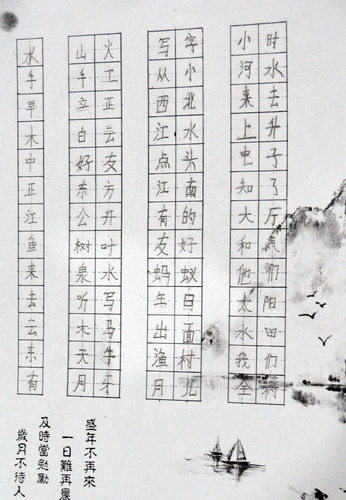 水 山火 写字 小时
手 手工 从小 河水
早 立正 西北 来去
木 白云 江水 上升
中 好友 点头 电子
正 东方 江南 知了
江 公开 有的 大厅
鱼 树叶 友好 和气
来 泉水 蚂蚁 他们
去 听写 生日 太阳
云 木马 出面 水田
东 天牛 渔村 我们
有 月牙 月儿 全
盛年不再來
一日難再晨
及時當勉勵
歲月不待人